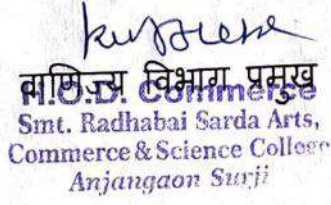 वाणिज्य विभाग प्रमुख
H.O.D. Commerce
Smt. Radhabai Sarda Arts,
Commerce & Science College
Anjangaon Surji